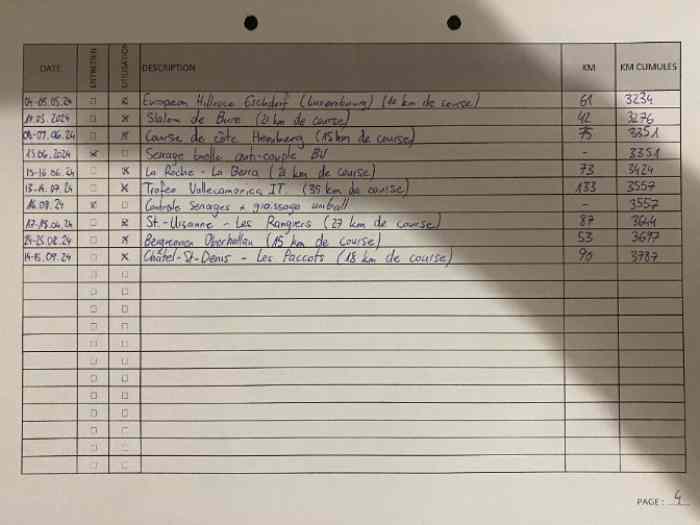 DATE ENTRETIEN UTILISATION DESCRIPTION KM KM CUMULES
04-05.05.24 ☐ ☒ European Hillrace Eschdorf (Luxembourg) ( km de course) 61 3234
.05.2024 ☐ ☒ Slalom de Bure (21 km de course) 42 3276
08-09.06.24 ☐ ☒ Course de côte Hemberg (15 km de course) 75 3351
13.06.2024 ☒ ☐ Serrage bielle anti-couple BV - 3351
15-16.06.24 ☐ ☒ La Roche - La Berra (21 km de course) 73 3424
13-14.07.24 ☐ ☒ Trofeo Vallecamonica IT. (35 km de course) 133 3557
16.08.24 ☒ ☐ Contrôle serrages + graissage uniball - 3557
17-18.08.24 ☐ ☒ St-Ursanne - Les Rangiers (27 km de course) 87 3644
24-25.08.24 ☐ ☒ Bergrennen Oberhallau (15 km de course) 53 3697
14-15.09.24 ☐ ☒ Châtel-St-Denis - Les Paccots (18 km de course) 90 3787
PAGE : 4